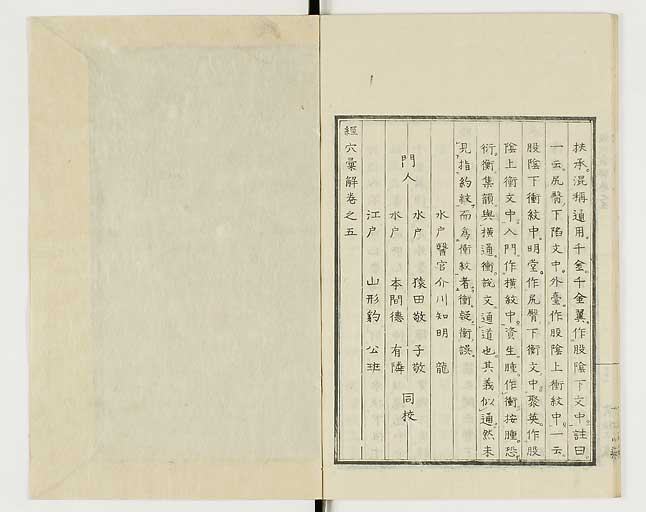 扶承混稱通用千金千金翼作股陰下文中註曰
一云尻臀下陷文中外臺作股陰上衝紋中一云
股陰下衝紋中明堂作尻臀下衝文中聚英作股
陰上衝文中入門作橫紋中資生腫作衝按腫恐
衍衝集韻與橫通衝說文通道也其義似通然未
見指約紋而爲衝紋者衝疑衡誤
水戶醫官介川知明 龍
門人
水戶 猿田敬 子敬
水戶 本間德 有隣
同校
江戶 山形豹 公班
經穴彙解卷之五